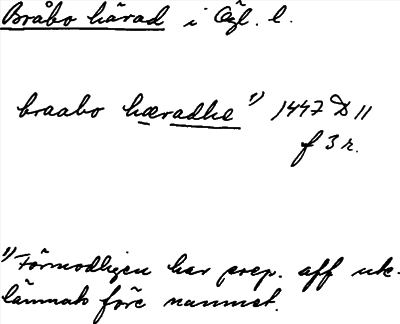 Bråbo härad i Ögl. l.
braabo hæradhe 1) 1447 D 11
f 3 r.
1) Förmodligen har prep. aff ute-
lämnats före namnet.